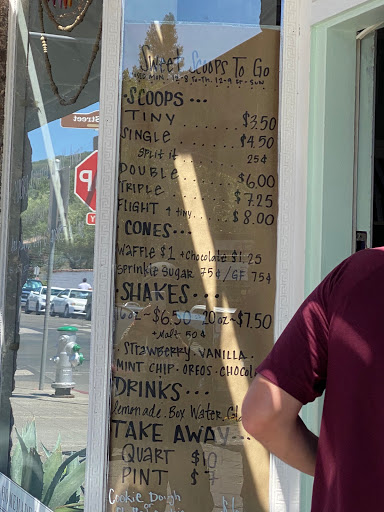 Sweet Scoops To Go
SCOOPS...
TINY ........ $3.50
SINGLE ........ $4.50
split it 25¢
DOUBLE ........ $6.00
TRIPLE ........ $7.25
FLIGHT 4 tiny .... $8.00
CONES...
WAFFLE $1 + Chocolate $1.25
Sprinkle Sugar 75¢ / GF 75¢
SHAKES...
16oz ~ $6.50 20oz ~ $7.50
+ Malt 50¢
· STRAWBERRY · VANILLA ·
MINT CHIP · OREOS · CHOCOL
DRINKS...
Lemonade. Box Water.
TAKE AWAY...
QUART $10
PINT $7
Cookie Dough
Street